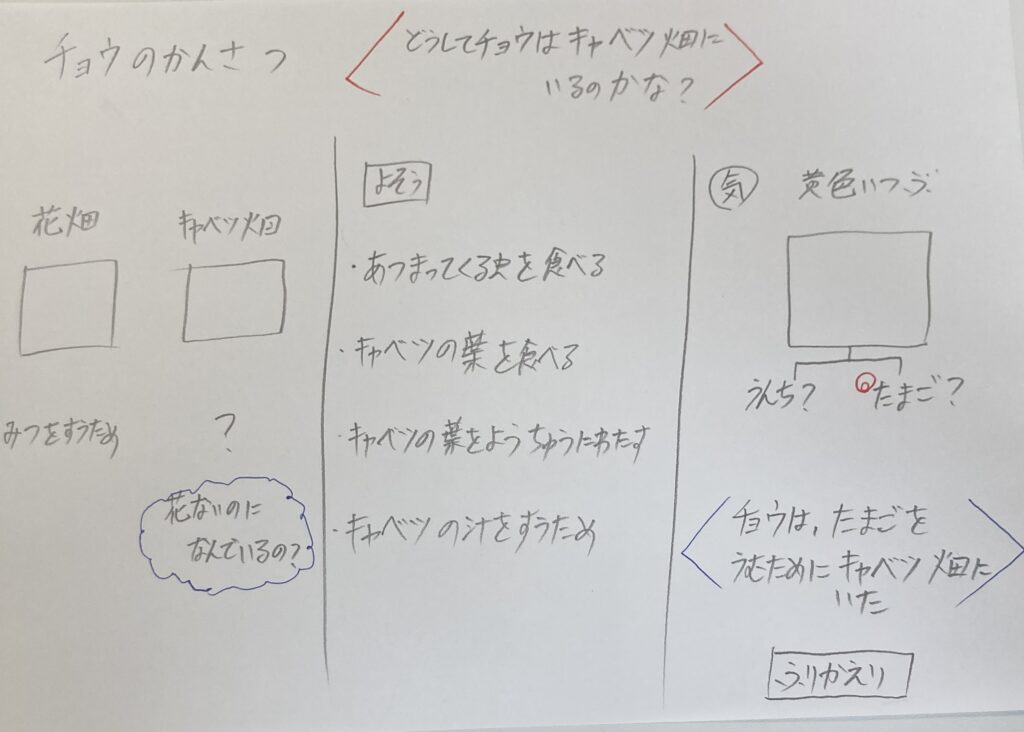 チョウのかんさつ
どうしてチョウはキャベツ畑に
いるのかな？
花畑
キャベツ畑
みつをすうため
？
花ないのに
なんでいるの？
よそう
・あつまってくる虫を食べる
・キャベツの葉を食べる
・キャベツの葉をようちゅうにわたす
・キャベツの汁をすうため
気 黄色いつぶ
うんち？
たまご？
チョウは、たまごを
うむためにキャベツ畑に
いた
ふりかえり